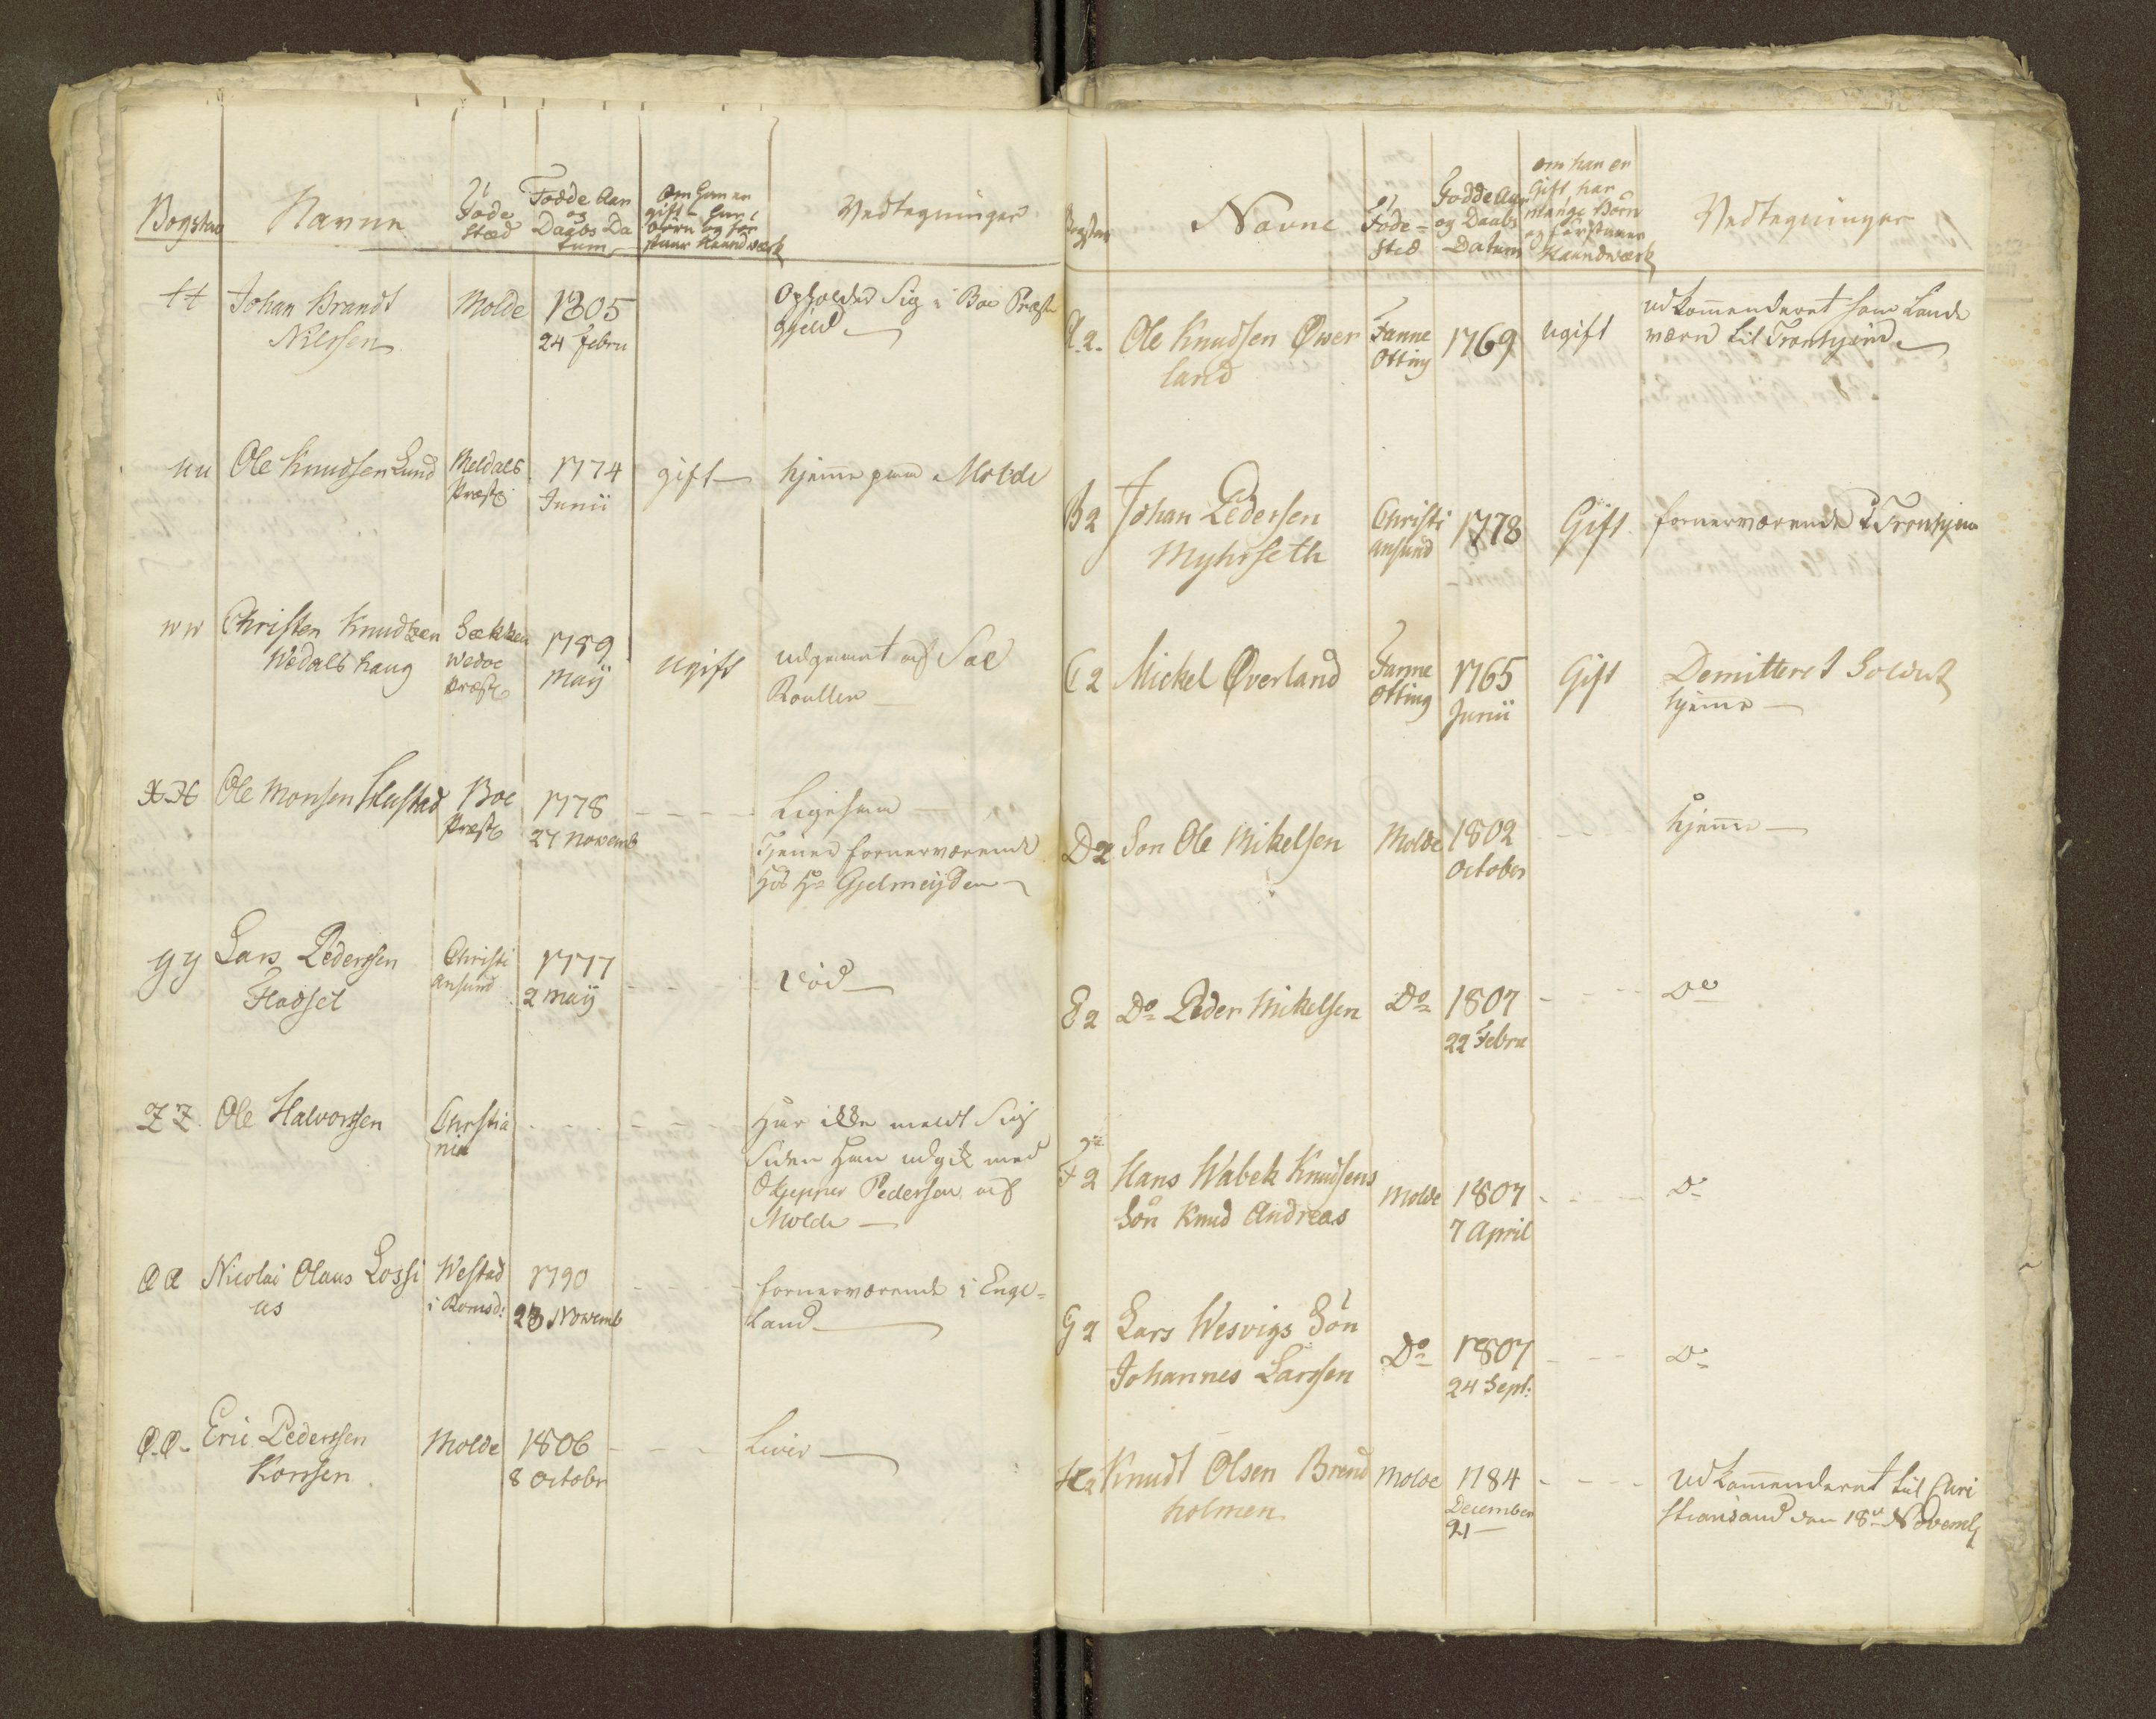 Bogstav
Navne
Føde
Stæd
Fødde Aar
og
Daabs Da
tum
Om han er
gift - har
Børn og for
staar Haandværk
Vedtegninger
tt
Johan Brandt
Nilssen
Molde
1805
24 Febru
Opholder Sig i Boe Præste
gjeld
uu
Ole Knudsen Lund
Meldals
Præstg
1774
Junii
gift
hjeme paa Molde
ww
Christen Knudtzen
Wedalshaug
Sækken
Wedoe
Præstg
1789
Maij
ugift
udgaaet af Søe
Roullen
XX
Ole Monsen Hustad
Boe
Præstg
1778
27 Novemb
Ligesaa
Tjener fornærværende
hos Hr Gjelmeyden
yy
Lars Pederssen
Hadsel
Christi
ansund
1777
2 Maij
Død
ZZ
Ole Halvorssen
Chrstia
nia
Har ikke meldt Sig
siden han udgik med
Skipper Pedersen af
Molde
Nicolai Olaus Lossi
us
Westad
i Romsd:
1790
28 Novemb
fornærværende i Enge=
land
Eric Pederssen
Korssen
Molde
1806
8 Octobr
Lever
Navne
Føde=
Sted
Fødde Aar
og Daabs
Datum
om han er
Gift har
mange Børn
og forstaaer
Haandværk
Vedtegninger
A2.
Ole Knudsen Øver
land
Fanne
Otting
1769
ugift
udkommenderet som Lande
værn til Tronhjem
B2
Johan Pedersen
Myhrseth
Christi
ansund
1778
Gift
fornærværende i Tronhjem
C2
Mickel Øverland
Fanne
Otting
1765
Junii
Gift
Demitteret Soldat
hjeme
D2
Søn Ole Mikelsen
Molde
1802
October
hjeme
E2
Do Peder Mikelsen
Do
1807
22 Febru
Do
F2
Hans Wabek Knudsens
Søn Knud Andreas
Molde
1807
7 April
Do
G2
Lars Wesvigs Søn
Johannes Larssen
Do
1807
24 Sept:
Do
H2
Knudt Olsen Brend
holmen
Molde
1784
December
21
udkommenderet til Chri
stiansand den 18de Novemb